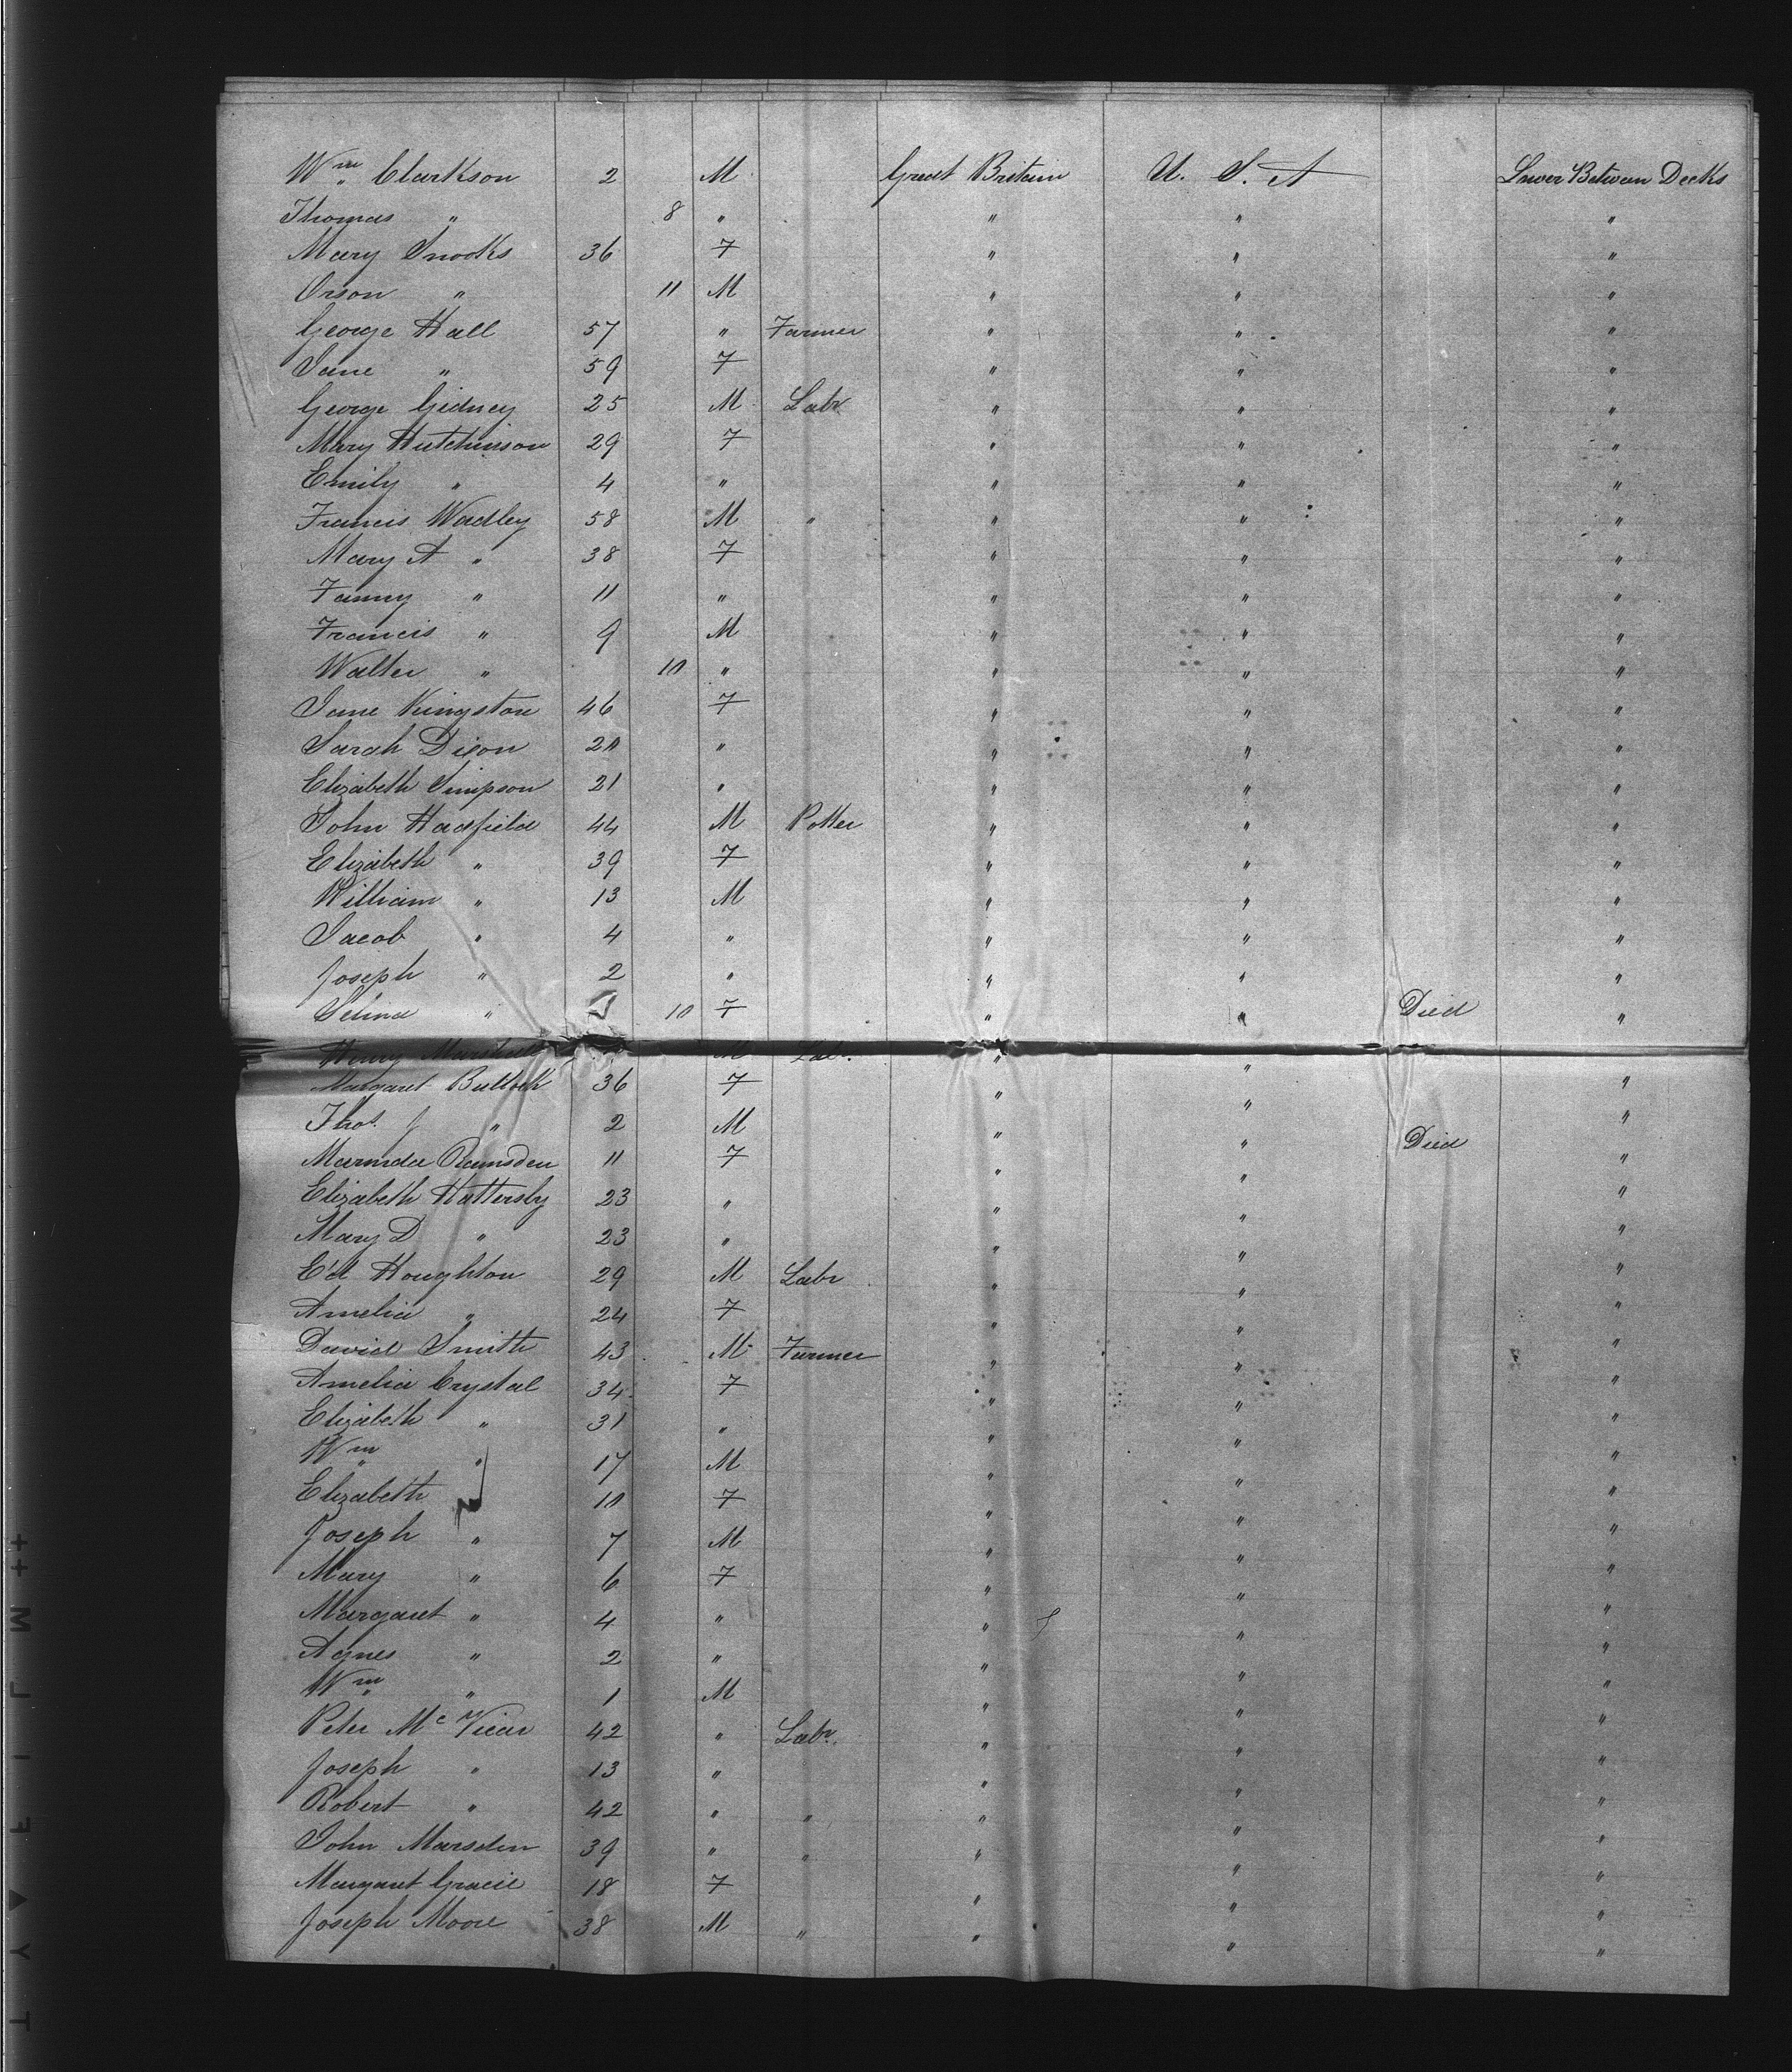 Wm Clarkson 2 M Great Britain U. S. A Lower Between Decks
Thomas " 8 " " " "
Mary Snooks 36 F " " "
Orson " 11 M " " "
George Hall 57 " Farmer " " "
Jane " 59 F " " "
George Gidney 25 M Labr " " "
Mary Hutchinson 29 F " " "
Emily " 4 " " " "
Francis Wadley 58 M " " " "
Mary A " 38 F " " "
Fanny " 11 " " " "
Francis " 9 M " " "
Walter " 10 " " " "
Jane Kingston 46 F " " "
Sarah Dixon 20 " " " "
Elizabeth Simpson 21 " " " "
John Hadfield 44 M Potter " " "
Elizabeth " 39 F " " "
William " 13 M " " "
Jacob " 4 " " " "
Joseph " 2 " " " "
Selina " 10 F " " Died "
Henry M Labr. " "
Margaret Bullock 36 F " " "
Thos. J " 2 M " " Died "
Marinda Ramsden 11 F " " "
Elizabeth Hattersby 23 " " " "
Mary D " 23 " " " "
E'd Houghton 29 M Labr " " "
Amelia " 24 F " " "
David Smith 43 M Farmer " " "
Amelia Crystal 34 F " " "
Elizabeth " 31 " " " "
Wm " 17 M " " "
Elizabeth " 10 F " " "
Joseph " 7 M " " "
Mary " 6 F " " "
Margaret " 4 " " " "
Agnes " 2 " " " "
Wm " 1 M " " "
Peter Mc Vicar 42 " Labr. " " "
Joseph " 13 " " " "
Robert " 42 " " " " "
John Marsden 39 " " " " "
Margaret Gracie 18 F " " "
Joseph Moore 38 M " " " "